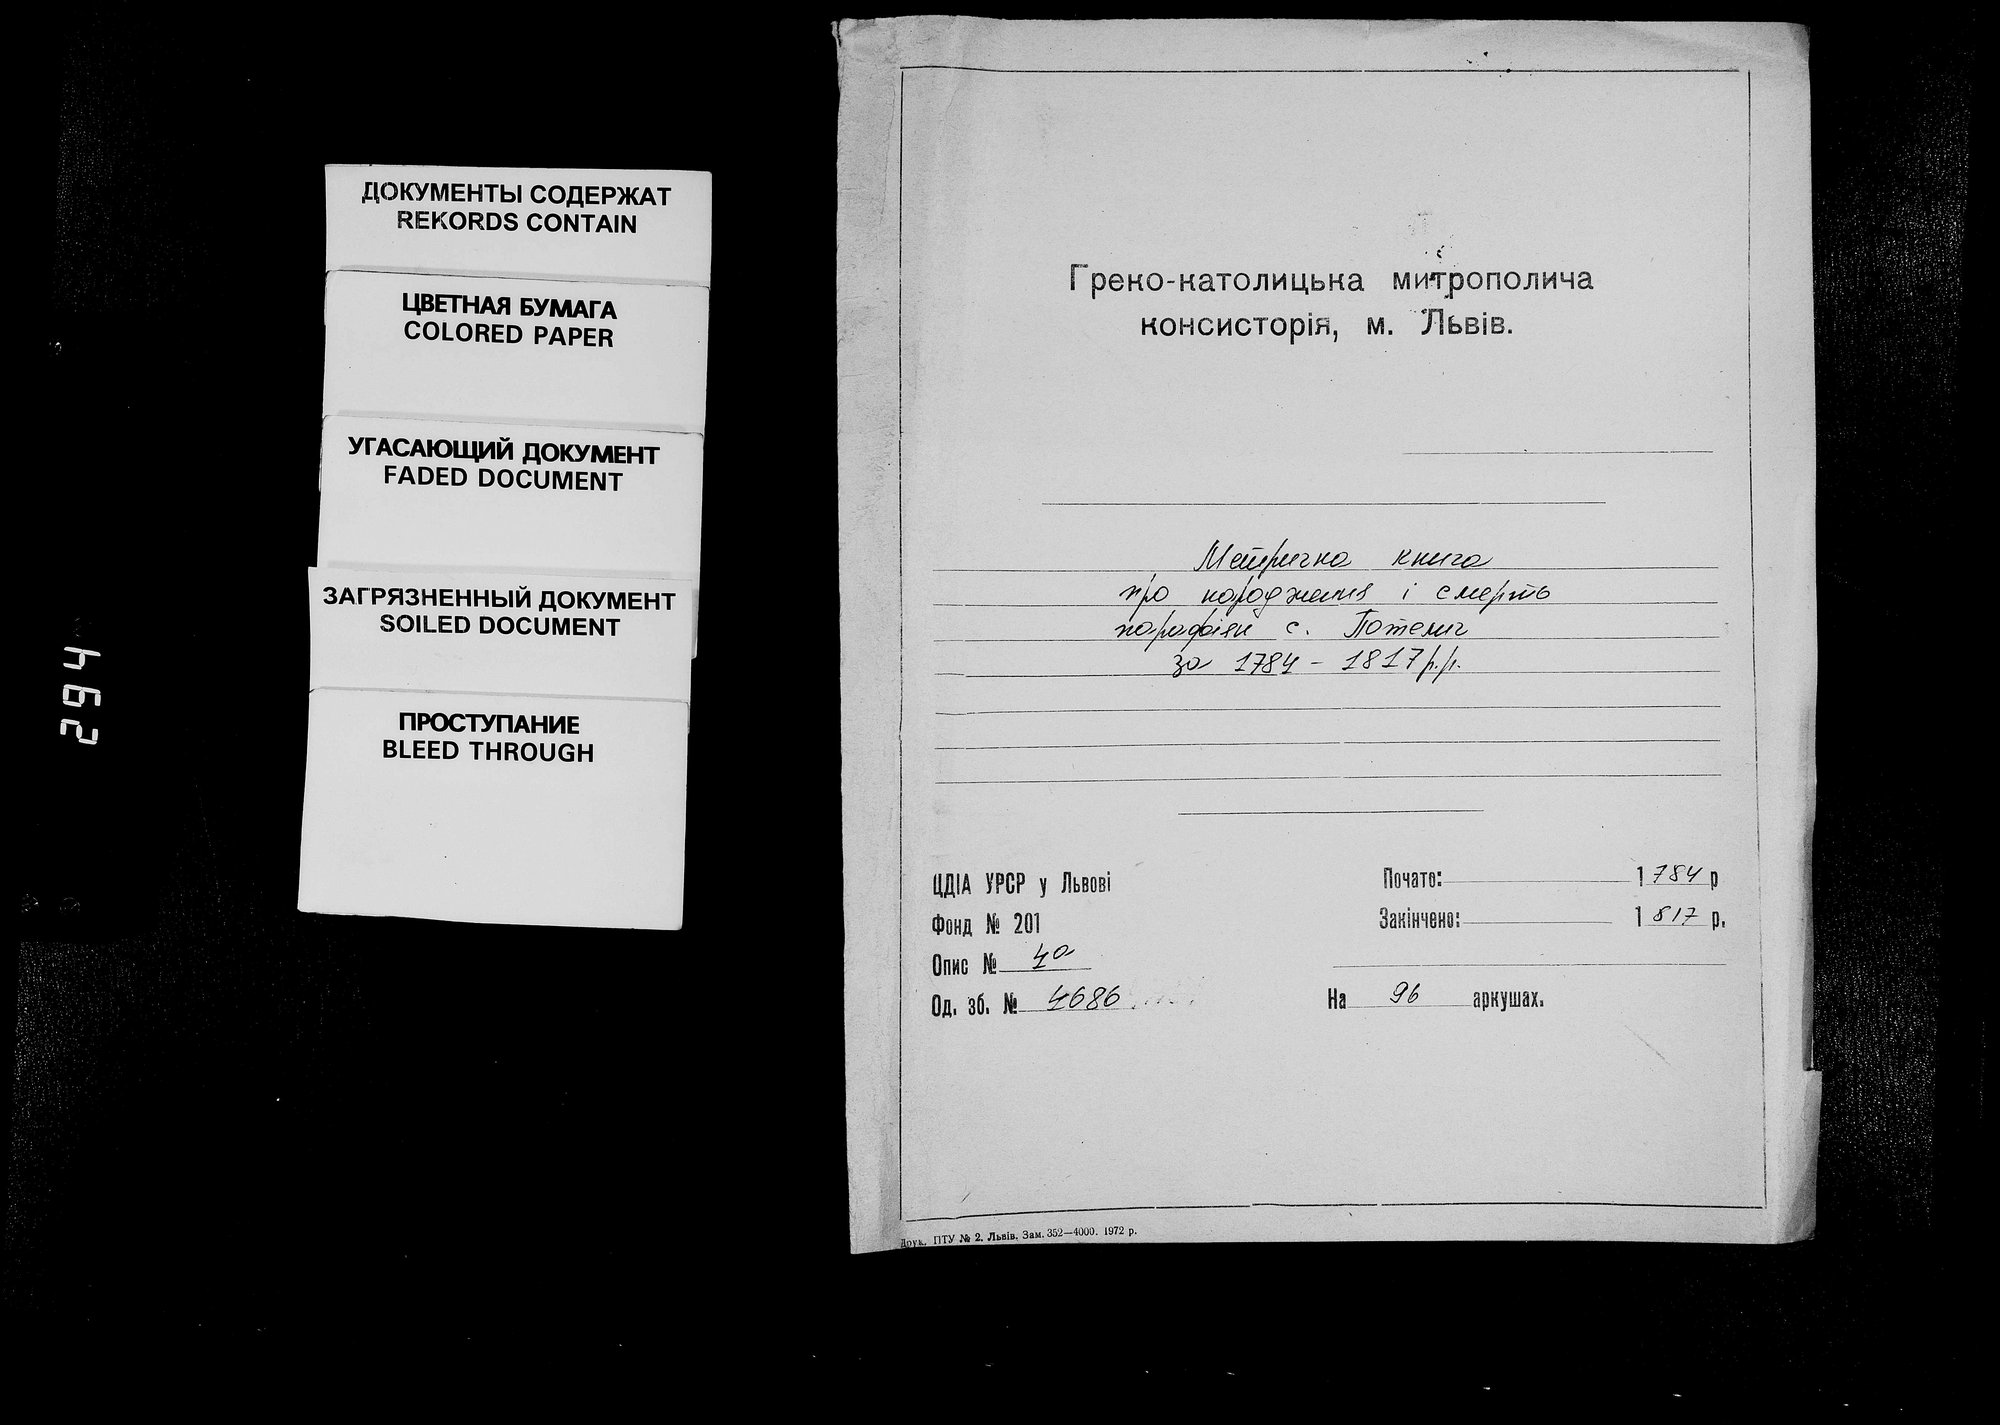 ДОКУМЕНТЫ СОДЕРЖАТ
REKORDS CONTAIN
ЦВЕТНАЯ БУМАГА
COLORED PAPER
УГАСАЮЩИЙ ДОКУМЕНТ
FADED DOCUMENT
ЗАГРЯЗНЕННЫЙ ДОКУМЕНТ
SOILED DOCUMENT
ПРОСТУПАНИЕ
BLEED THROUGH
294
Греко-католицька митрополича
консисторія, м. Львів.
Метрична книга
про народження і смерть
парафіян с. Потелич
за 1784 - 1817 р.р.
ЦДІА УРСР у Львові
Фонд № 201
Опис № 4а
Од. зб. № 4686
Почато: 1784 р
Закінчено: 1817 р.
На 96 аркушах.
Друк. ПТУ № 2. Львів. Зам. 352—4000. 1972 р.